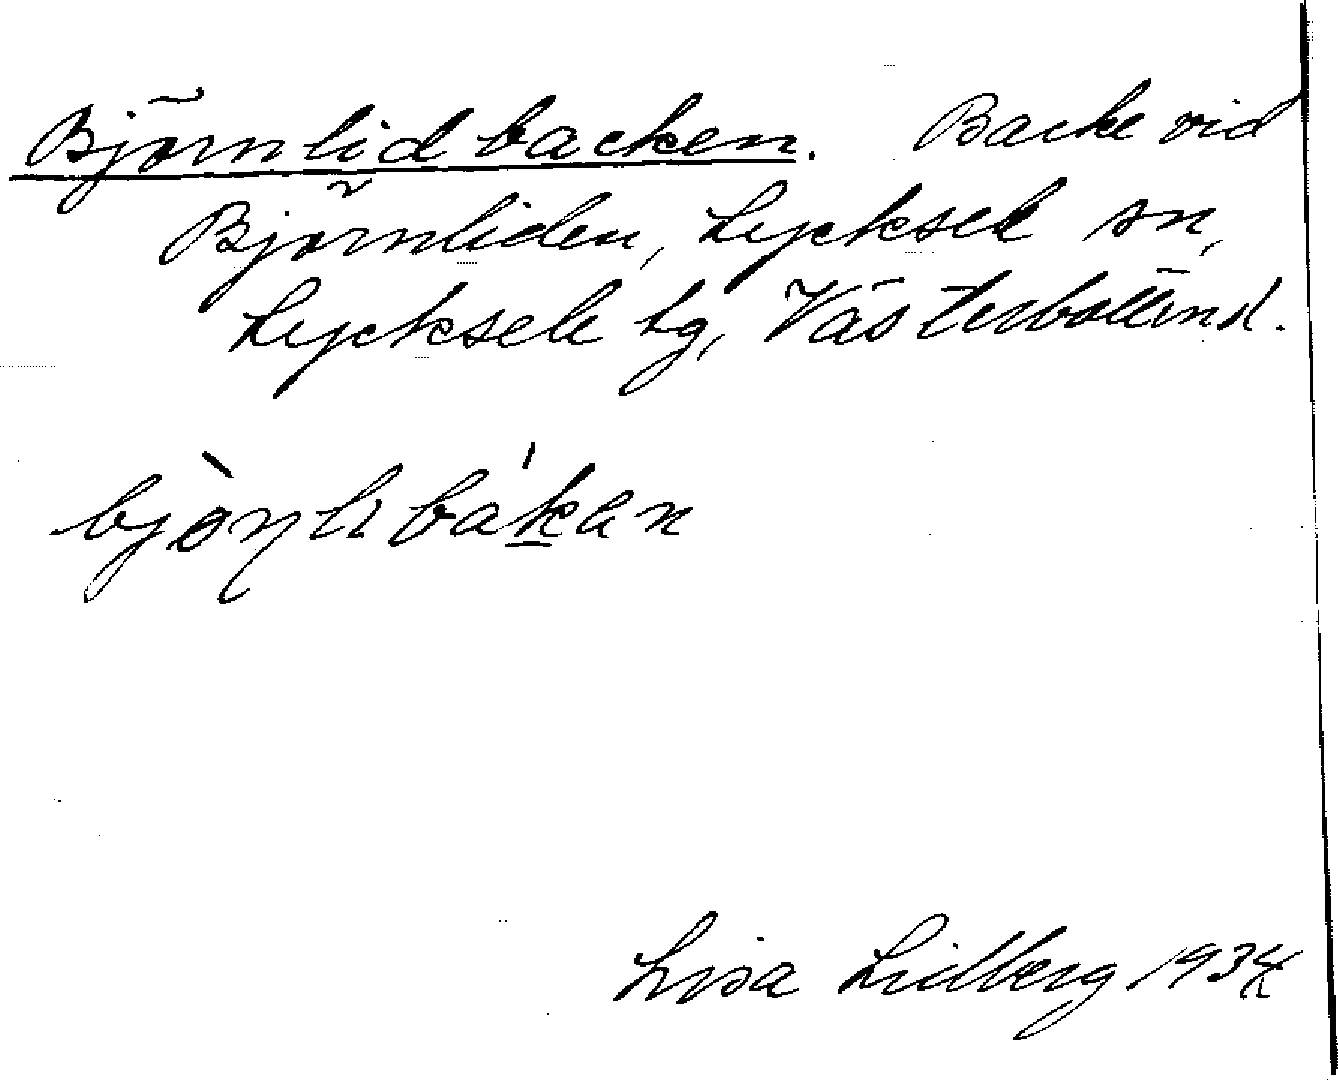 Björnlidbacken. Backe vid
Björnliden, Lycksele sn,
Lycksele tg, Västerbotten
Lisa Lidberg 1934